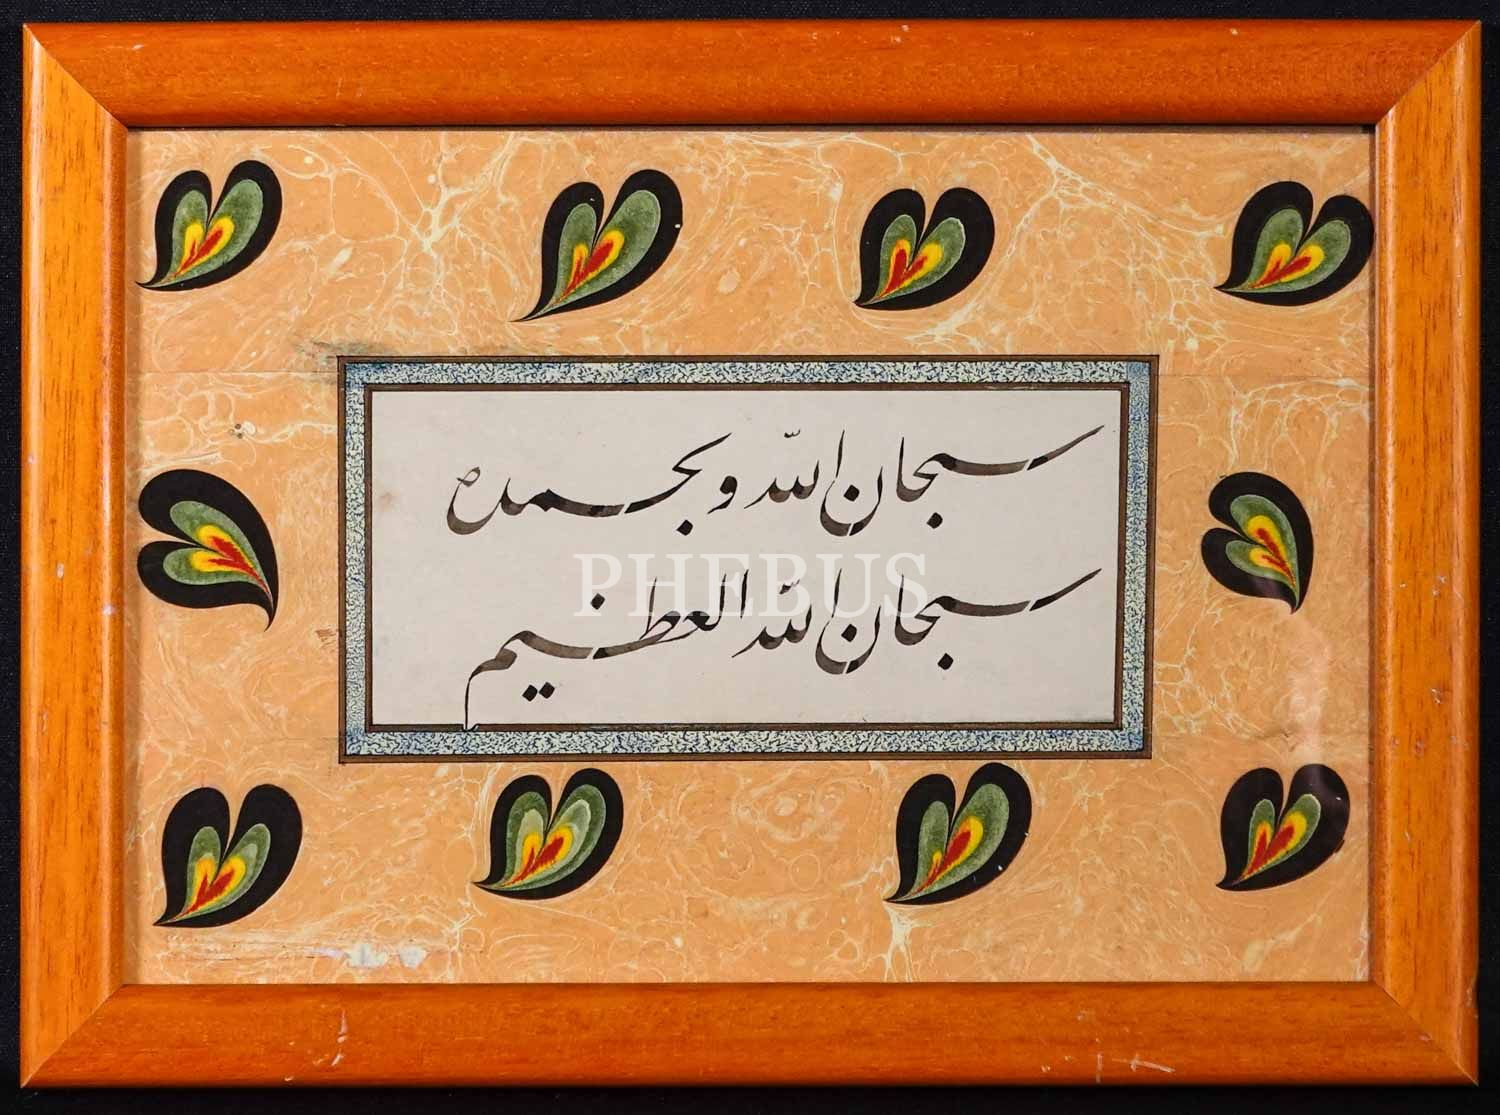 سبحان الله وبحمده
سبحان الله العظيم
PHEBUS